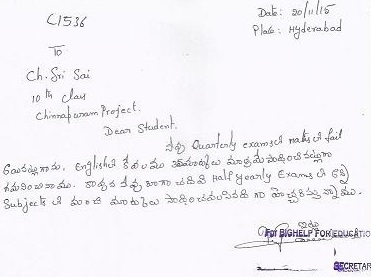 C1536
Date: 20/11/15
Place: Hyderabad
To
Ch. Sri Sai
10th Class
Chinnapuram Project.
Dear Student.
నీవు Quarterly exams లో maths లో fail
English లో కేవలము మార్కులు మాత్రమే
గమనించాము. కావున నీవు బాగా చదివి Half yearly Exams లో అన్ని
Subjects లో మంచి మార్కులు
ఇట్లు
For BIGHELP FOR EDUCATIO
SECRETAR